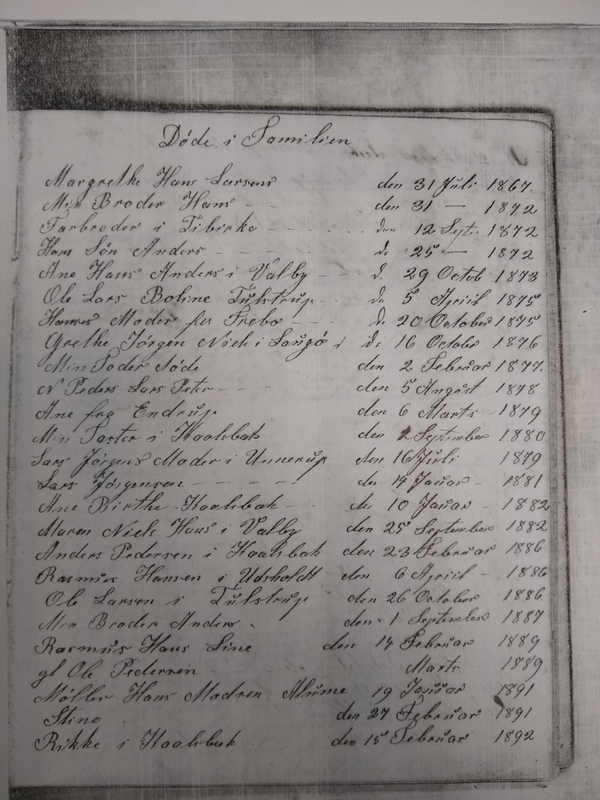 Døde i Familien
Margrethe Hans Larsens den 31 Juli 1867.
Min Broder Hans - den 31 — 1872
Farbroder i Tibirke - - den 12 Sept. 1872
Hans Søn Anders - - de 25 — 1872
Ane Hans Anders i Valby - - d. 29 Octob 1873
Ole Lars Boline Tulstrup - - de 5 Apriil 1875
Hannes Moder fra Trebo - - d. 20 October 1875
Grethe Jørgen Niels i d. 16 October 1876
Min Foder døde den 2 Februar 1877.
N Peders Lars Peter - - - den 5 August 1878
Ane fra Endrup den 6 Marts - 1879
Min Faster i Kaalsbak den 2 September 1880
Lars Jørgens Moder i Unnerup den 16 Juli 1879
Lars Jørgensen - - - - den 14 Januar - 1881
Ane Birthe Kaalsbak - den 10 Januar - 1882
Maren Niels Hans i Valby den 25 September 1882
Anders Pedersen i Kaalsbak den 23 Februar 1886
Rasmus Hansen i Udsholdt den 6 Apriil - 1886
Ole Larsen i Tulstrup den 26 October 1886
Min Broder Anders - den 1 September 1887
Rasmus Hans Line den 14 Februar 1889
gl Ole Pedersen Marts 1889
Möller Hans Madsen 19 Januar 1891
Stine den 27 Februar 1891
Rikke i Kaalsbak den 15 Februar 1892